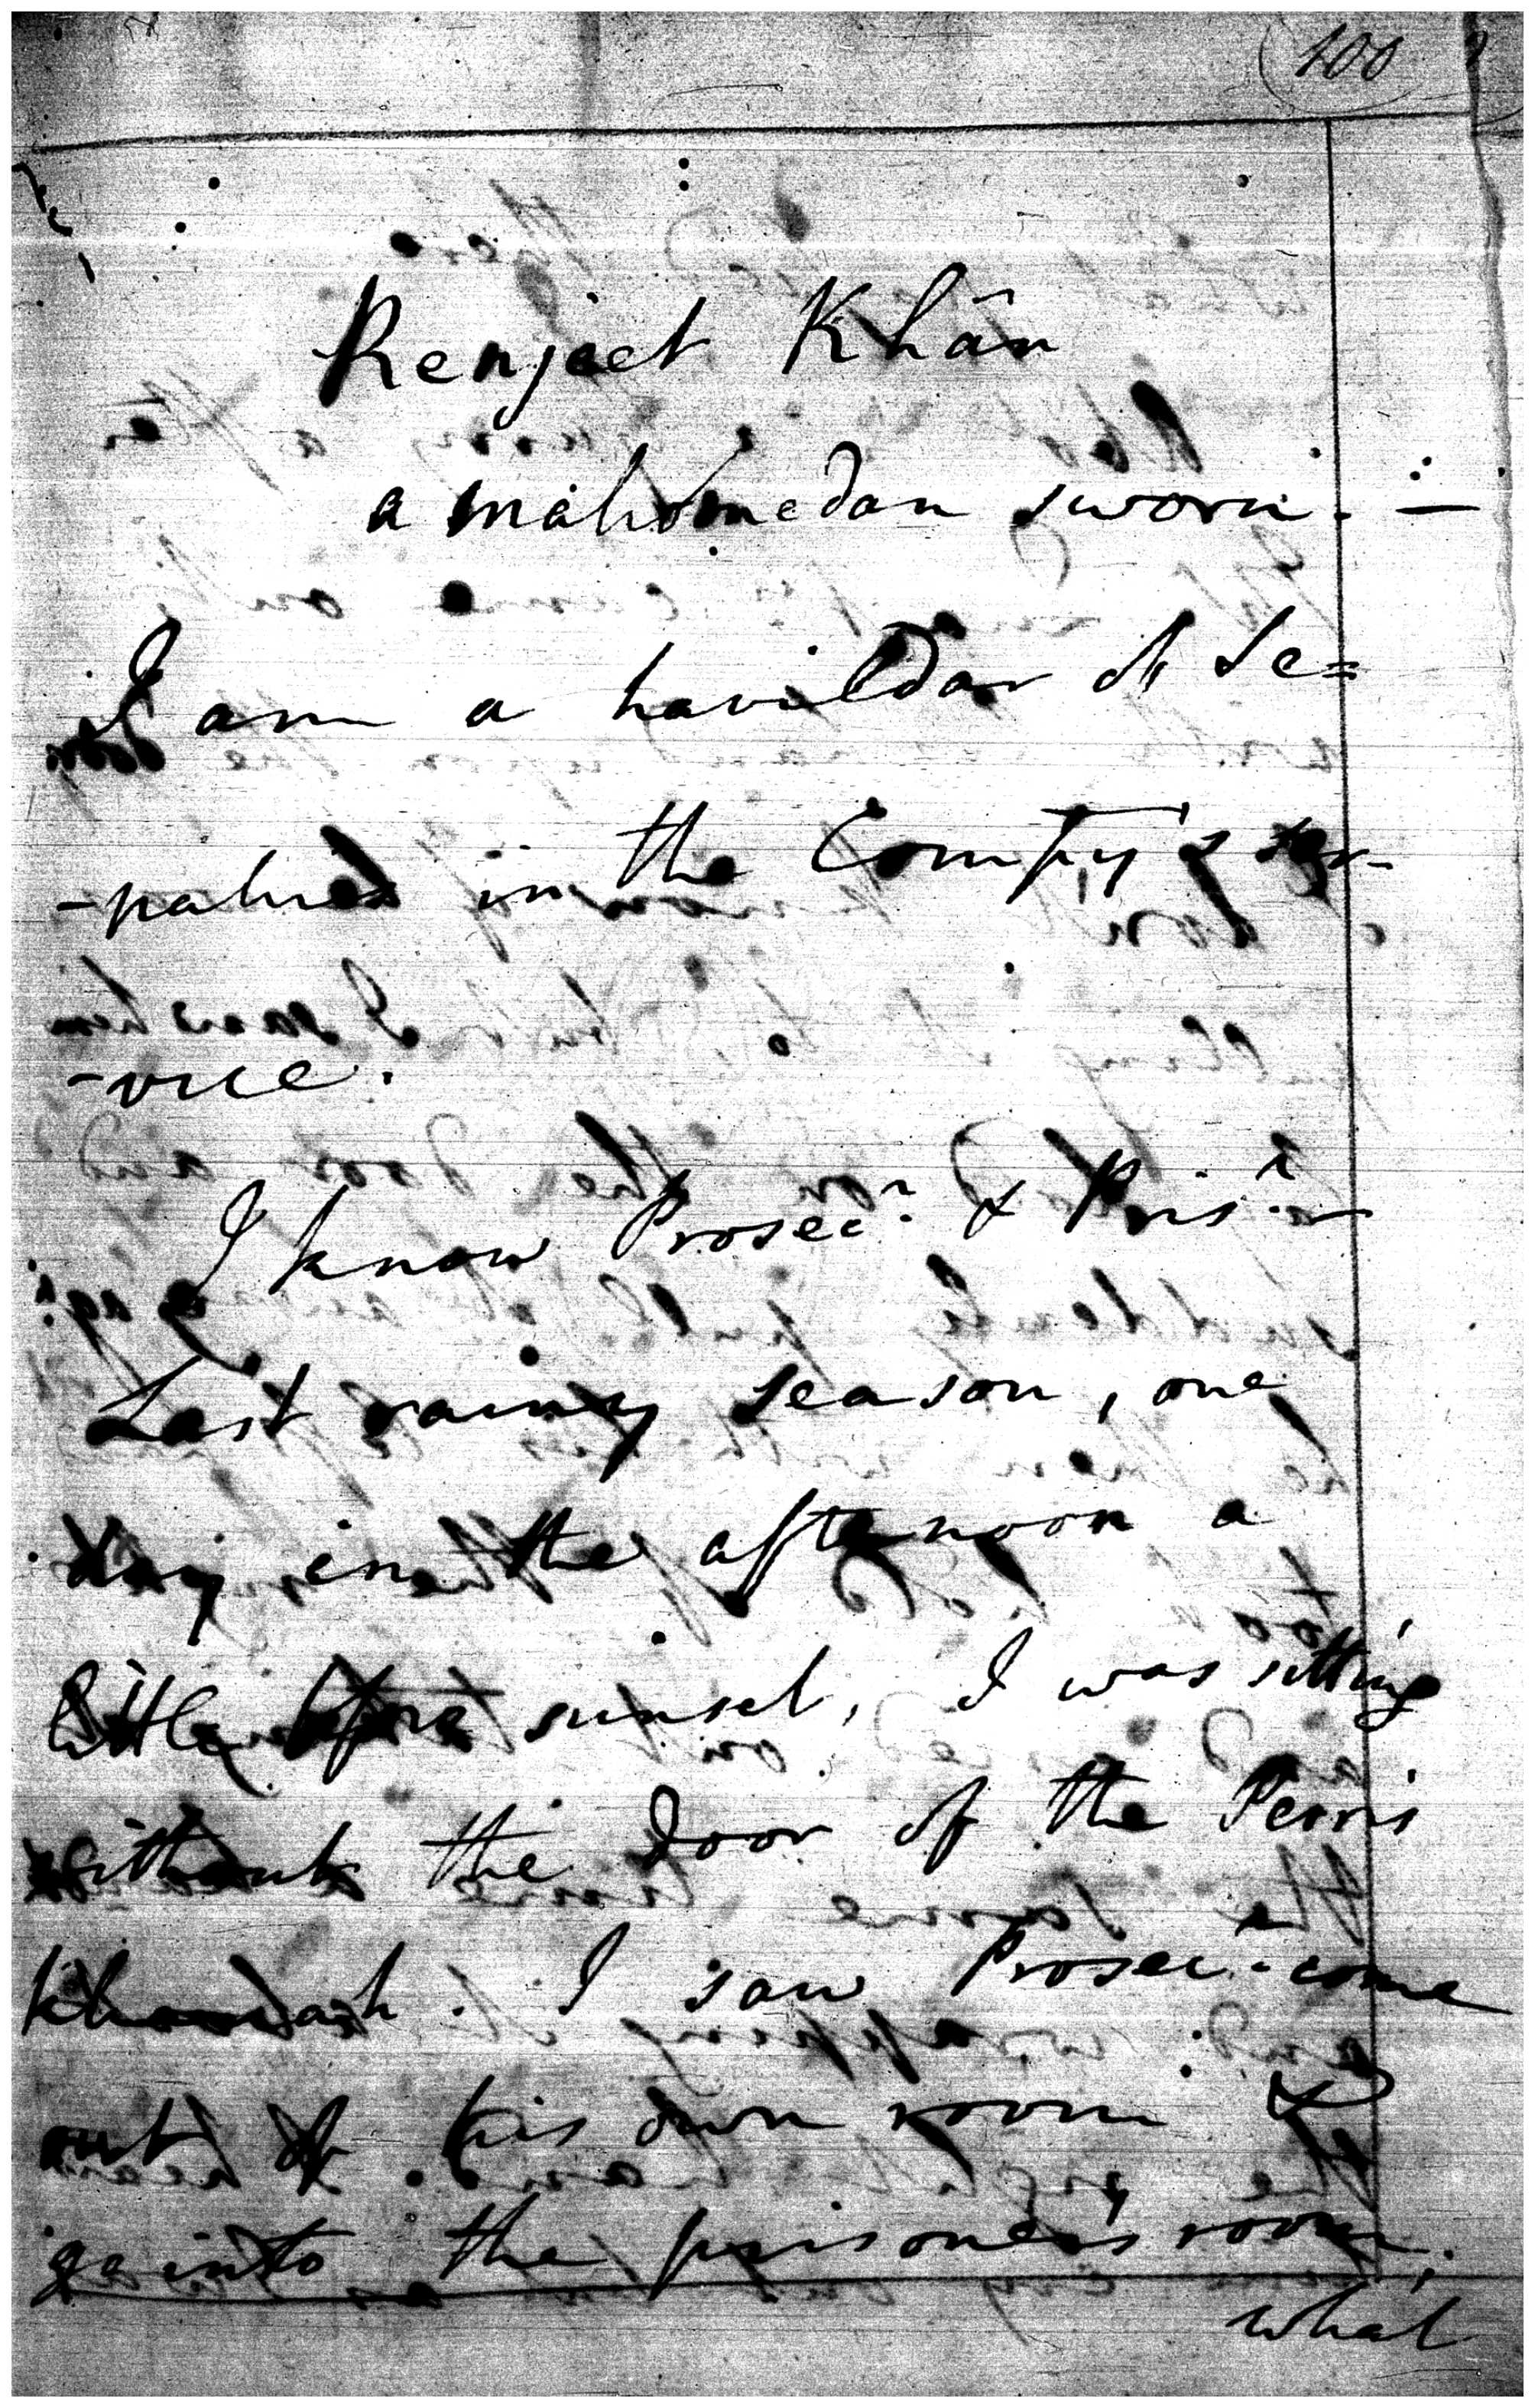 100
Renjeet Khân
a mahomedan sworn. —
I am a havildar of Se=
-pahies in the Comp,y's ser-
-vice.
I know Prosec.r & Pris.r
Last rainy season, one
day in the afternoon a
little before sunset, I was sitting
without the door of the
I saw Prosec.r come
out of his own room &
go into the prisoner's room,
what